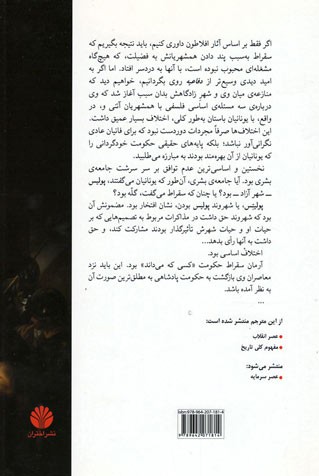 اگر فقط بر اساس آثار افلاطون داوری کنیم، باید نتیجه بگیریم که
سقراط به‌سبب پند دادن همشهریانش به فضیلت، که هیچ‌گاه
مشغله‌ای محبوب نبوده است، با آنها به دردسر افتاد. اما اگر به
امید دیدی وسیع‌تر از دفاعیه روی بگردانیم، خواهیم دید که
منازعه‌ی میان وی و شهر زادگاهش بدان سبب آغاز شد که وی
درباره‌ی سه مسئله‌ی اساسی فلسفی با همشهریان آتنی و، در
واقع، با یونانیان باستان به‌طور کلی، اختلاف بسیار عمیق داشت.
این اختلاف‌ها صرفاً مجردات دوردست نبود که برای فانیان عادی
نگرانی‌آور نباشد؛ بلکه پایه‌های حقیقی حکومت خودگردانی را
که یونانیان از آن بهره‌مند بودند به مبارزه می‌طلبید.
نخستین و اساسی‌ترین عدم توافق بر سر سرشت جامعه‌ی
بشری بود. آیا جامعه‌ی بشری، آن‌طور که یونانیان می‌گفتند، پولیس
ــ شهر آزاد ــ بود؟ یا چنان که سقراط می‌گفت، گله بود؟
پولیتِیس، یا شهروند پولیس بودن، نشان افتخار بود. مضمونش آن
بود که شهروند حق داشت در مذاکرات مربوط به تصمیم‌هایی که بر
حیات او و حیات شهرش تأثیرگذار بودند مشارکت کند، و حق
داشت به آنها رأی بدهد...
اختلاف اساسی بود.
آرمان سقراط حکومت «کسی که می‌داند» بود. این باید نزد
معاصران وی بازگشت به حکومت پادشاهی به مطلق‌ترین صورت آن
به نظر آمده باشد.
...
از این مترجم منتشر شده است:
عصر انقلاب
مفهوم کلی تاریخ
منتشر می‌شود:
عصر سرمایه
نشر اختران
ISBN: 978-964-207-181-4
9 789642 071814